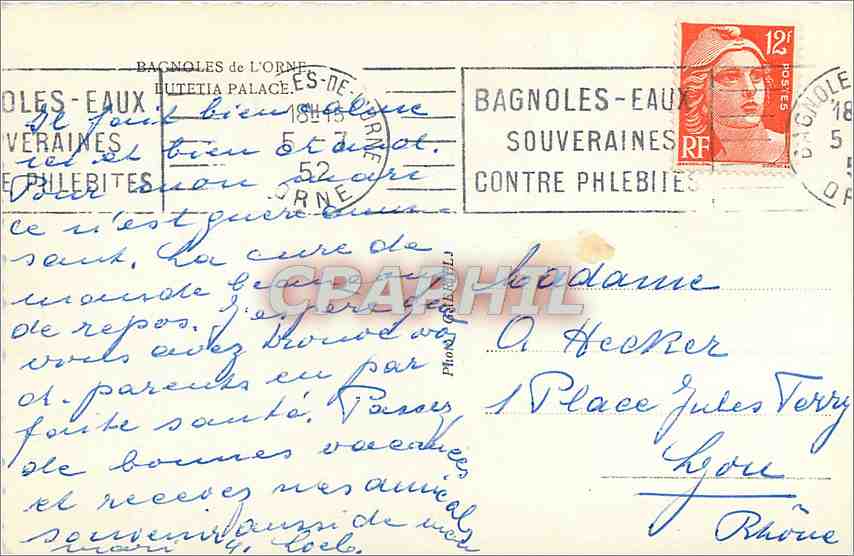 BAGNOLES de L'ORNE
LUTETIA PALACE.
OLES-EAUX
VERAINES
E PHLEBITES
LES-DE-L'ORNE
18H15
5-7
52
ORNE
BAGNOLES-EAUX
SOUVERAINES
CONTRE PHLEBITES
12F
POSTES
RF
BAGNOLE
18
5
5
OR
Il fait bien calme
ici et bien chaud.
Pour mon mari
ce n'est guère amu-
sant. La cure de
demande beaucoup
de repos. J'espère que
vous avez trouvé vos
ch. parents en par
faite santé. Passez
de bonnes vacances
et recevez mes amicals
souvenirs aussi de mon
mari
Photo
CPARPHIL
Madame
A Hecker
1 Place Jules Ferry
Lyon
Rhône